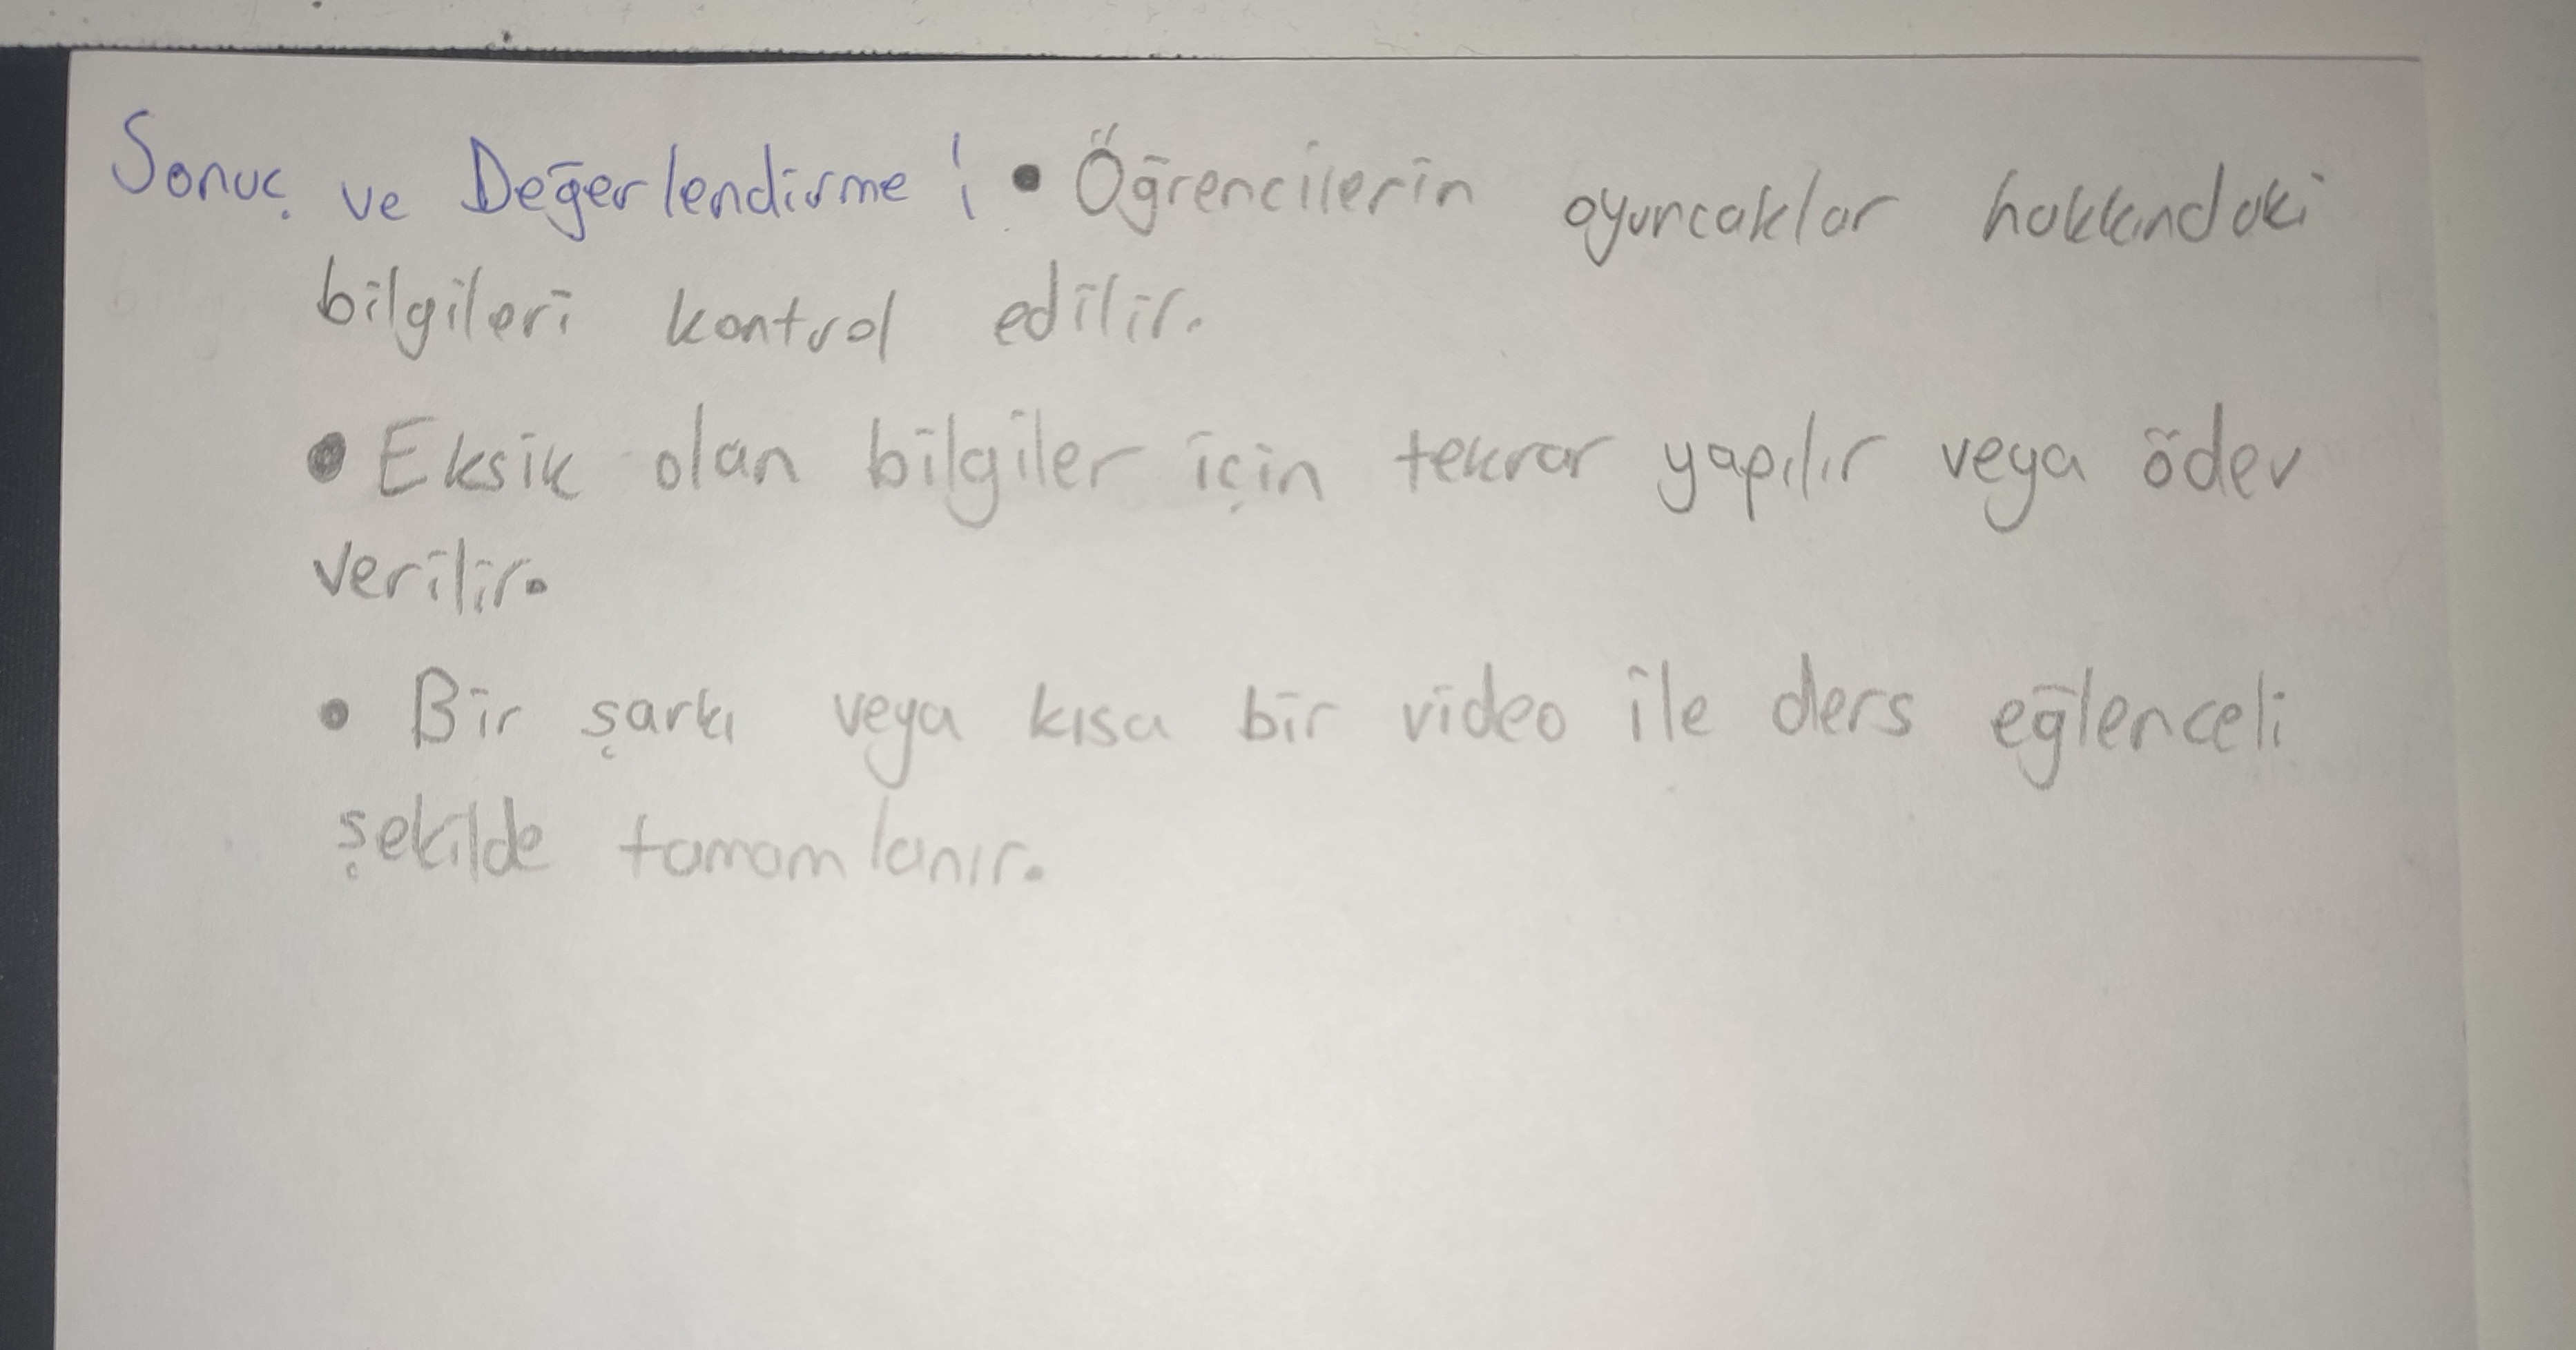 Sonuç ve Değerlendirme : • Öğrencilerin oyuncaklar hakkındaki
bilgileri kontrol edilir.
• Eksik olan bilgiler için tekrar yapılır veya ödev
verilir.
• Bir şarkı veya kısa bir video ile ders eğlenceli
şekilde tamamlanır.